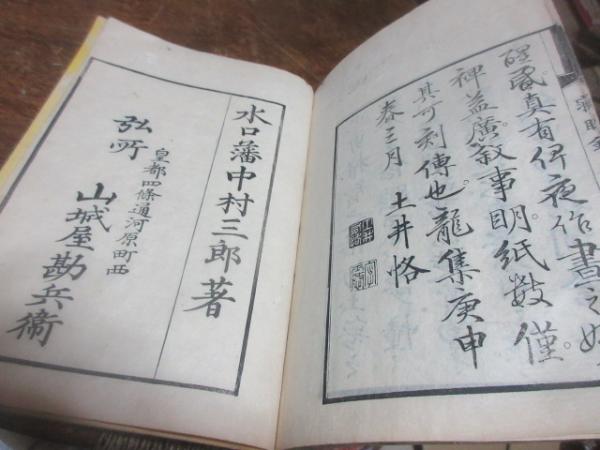 醒風真有俾夜作晝之
裨益廣。叙事明。紙數僅。
其可刻傳也。龍集庚申
春三月　土井恪
水口藩中村三郎著
皇都四條通河原町西
弘所　山城屋勘兵衞